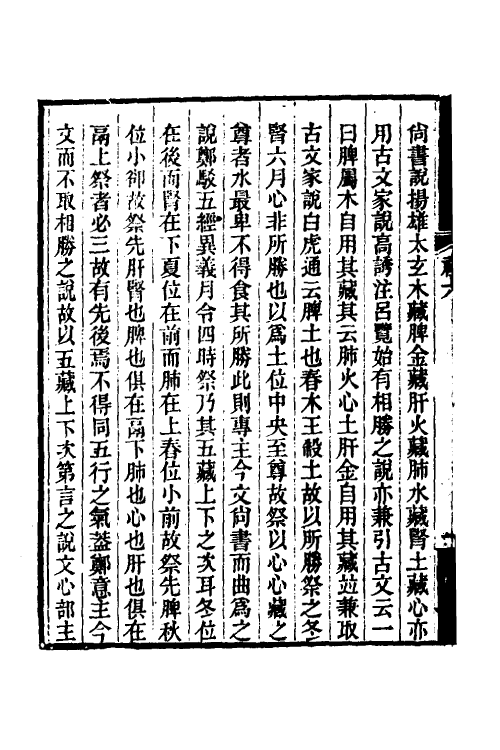 尙書說揚雄太玄木藏脾金藏肝火藏肺水藏腎土藏心亦
用古文家說高誘注呂覽始有相勝之說亦兼引古文云一
曰脾屬木自用其藏其云肺火心土肝金自用其藏竝兼取
古文家說白虎通云脾土也春木王殺土故以所勝祭之冬
腎六月心非所勝也以爲土位中央至尊故祭以心心藏之
尊者水最卑不得食其所勝此則專主今文尙書而曲爲之
說鄭駁五經異義月令四時祭乃其五藏上下之次耳冬位
在後而腎在下夏位在前而肺在上春位小前故祭先脾秋
位小卻故祭先肝腎也脾也俱在鬲下肺也心也肝也俱在
鬲上祭者必三故有先後焉不得同五行之氣葢鄭意主今
文而不取相勝之說故以五藏上下次第言之說文心部主